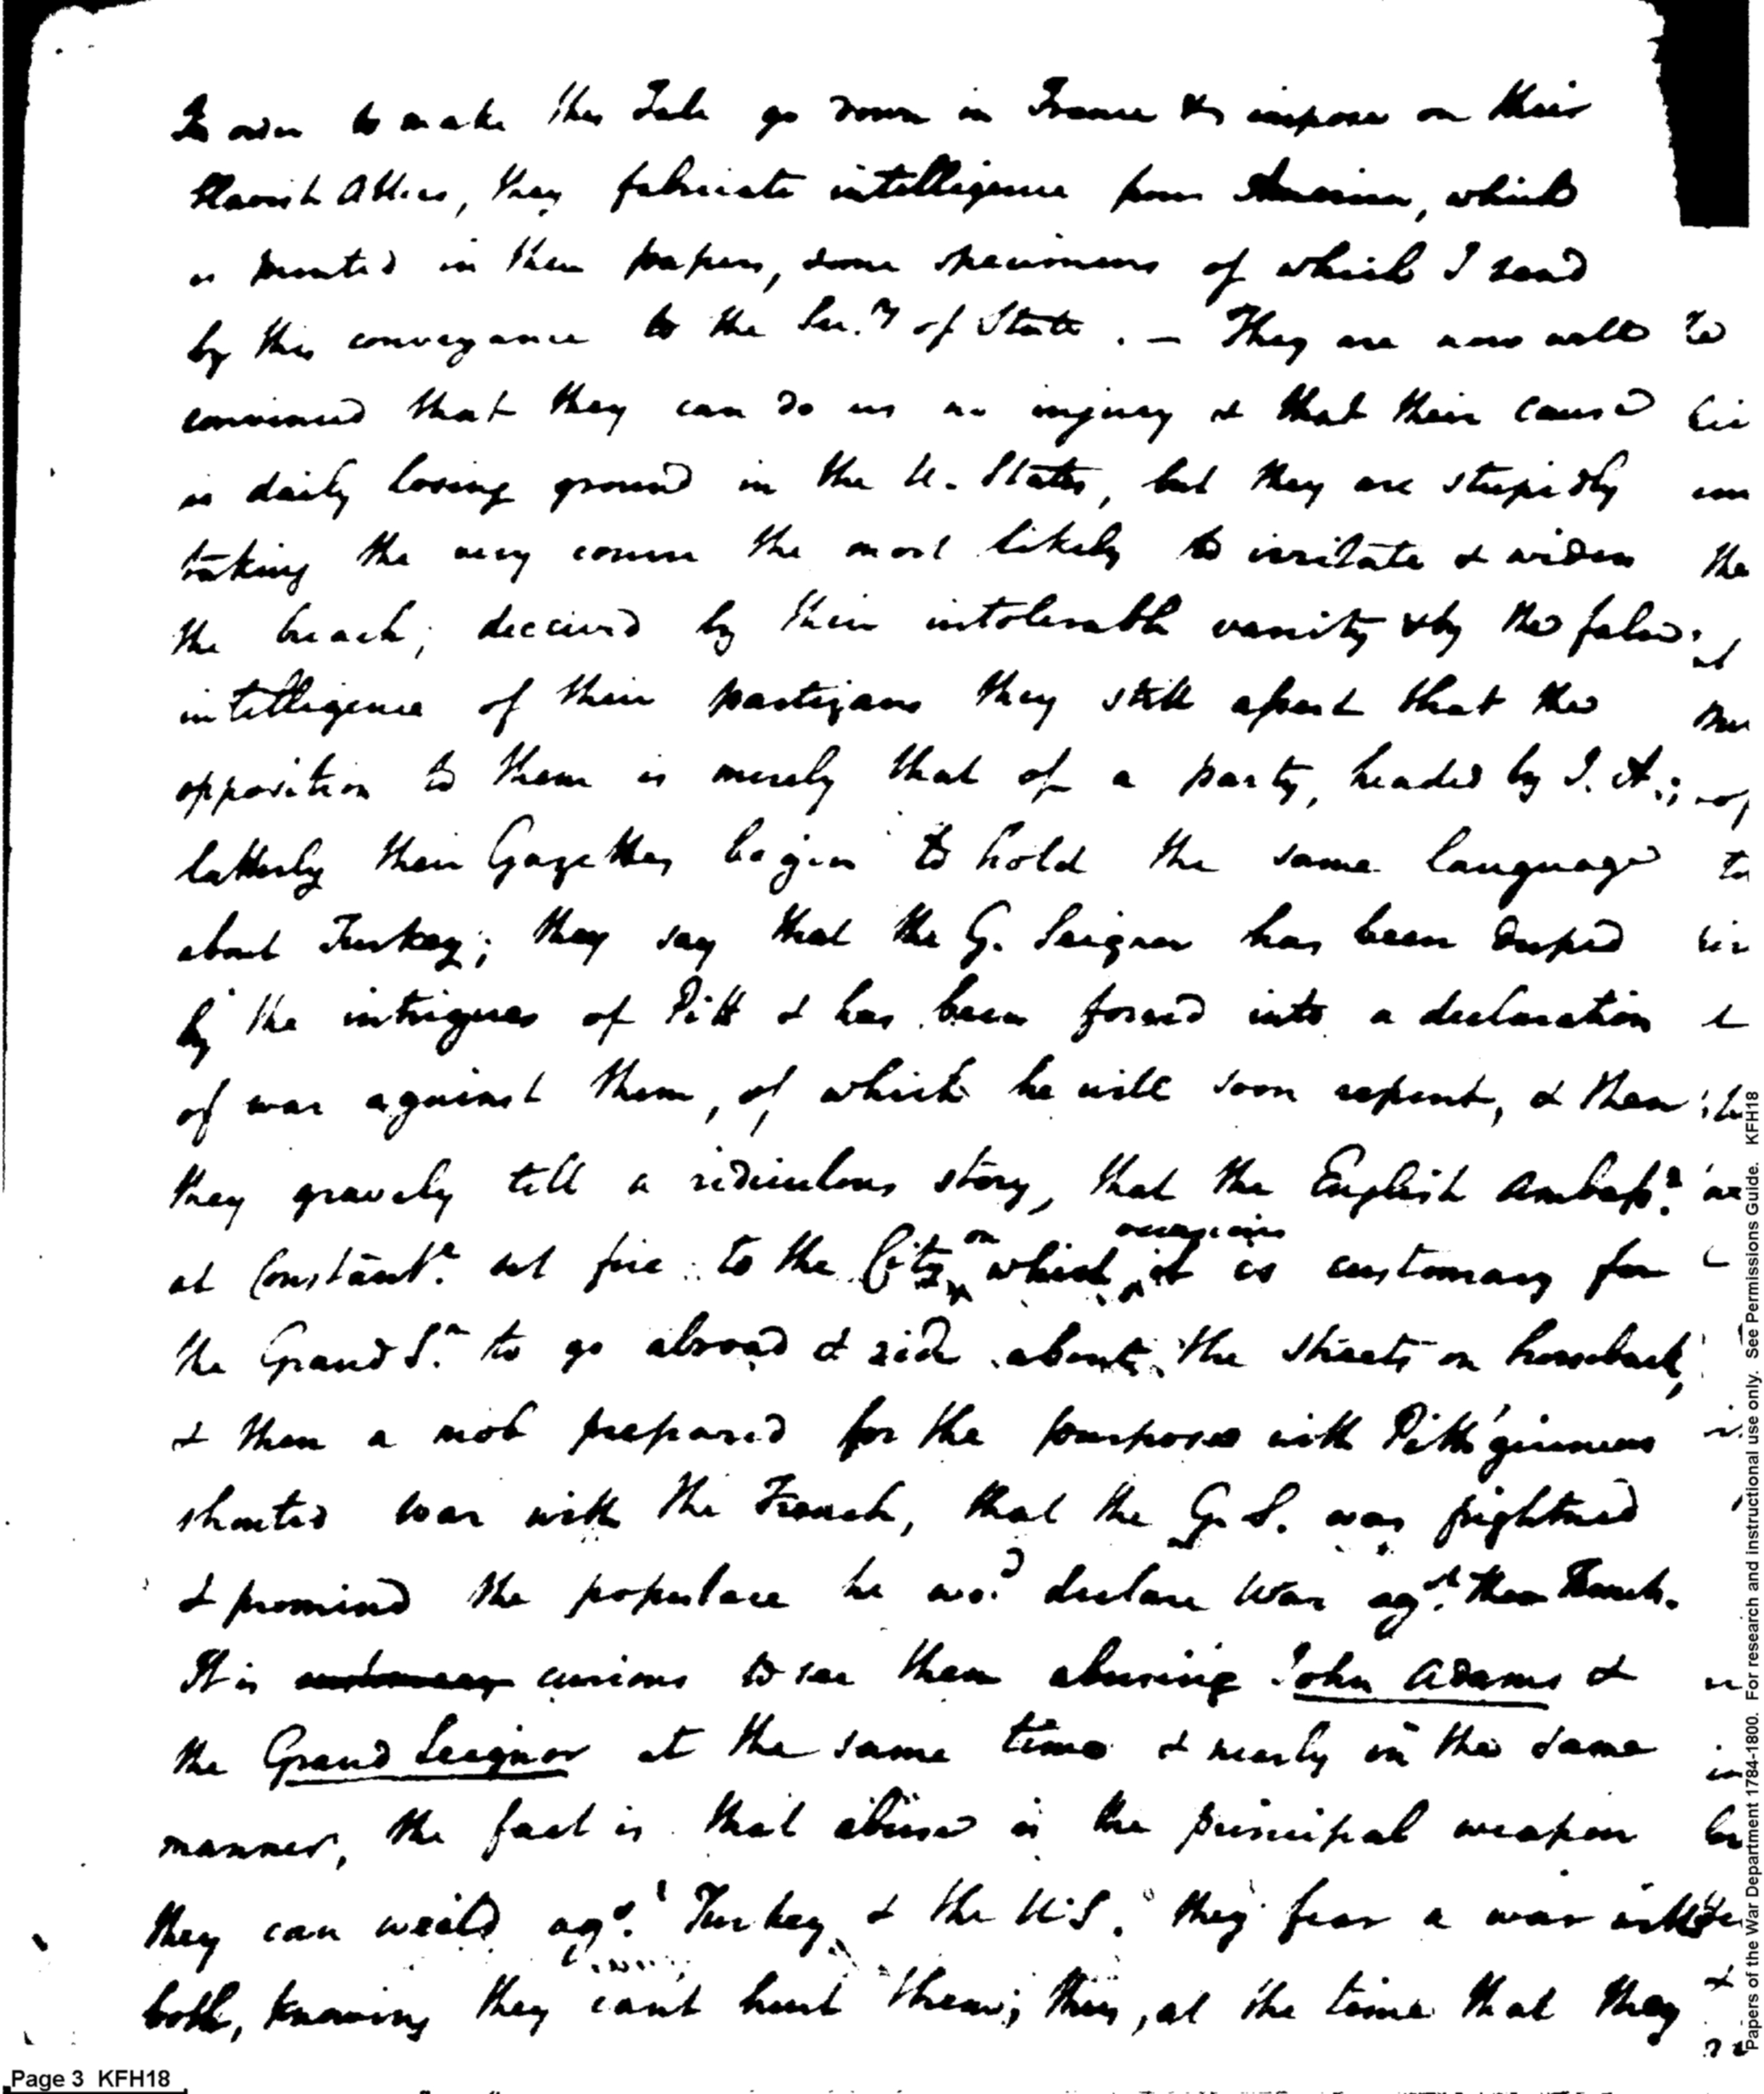 In order to make this Tale go down in France & to impose on their
slavish Allies, they fabricate intelligence from America, which
is printed in their papers, some specimens of which I send
by this conveyance to the Sec.ry of State. — They are now well
convinced that they can do us no injury & that their cause
is daily losing ground in the U. States, but they are stupidly
taking the very course the most likely to irritate & widen
the breach; deceived by their intolerable vanity & by the false
intelligence of their partizans they still assert that the
opposition to them is merely that of a party, headed by J. A.;
latterly their Gazettes begin to hold the same language
about Turkey; they say that the G. Seignor has been duped
by the intrigues of Pitt & has been forced into a declaration
of war against them, of which he will soon repent, & then
they gravely tell a ridiculous story, that the English Ambass.r
at Constant.e set fire to the City, on which occasions it is customary for
the Grand S.r to go abroad & ride about the streets on horseback,
& then a mob prepared for the purpose with Pitt's guineas
shouted war with the French, that the G. S. was frightned
& promised the populace he wo.d declare War ag.st the French.
It is customary curious to see them abusing John Adams &
the Grand Seignor at the same time & nearly in the same
manner, the fact is that abuse is the principal weapon
they can weild ag.st Turkey & the U.S. they fear a war with
both, knowing they cant hurt them; thus, at the time that they
Page 3 KFH18
Papers of the War Department 1784-1800. For research and instructional use only. See Permissions Guide. KFH18